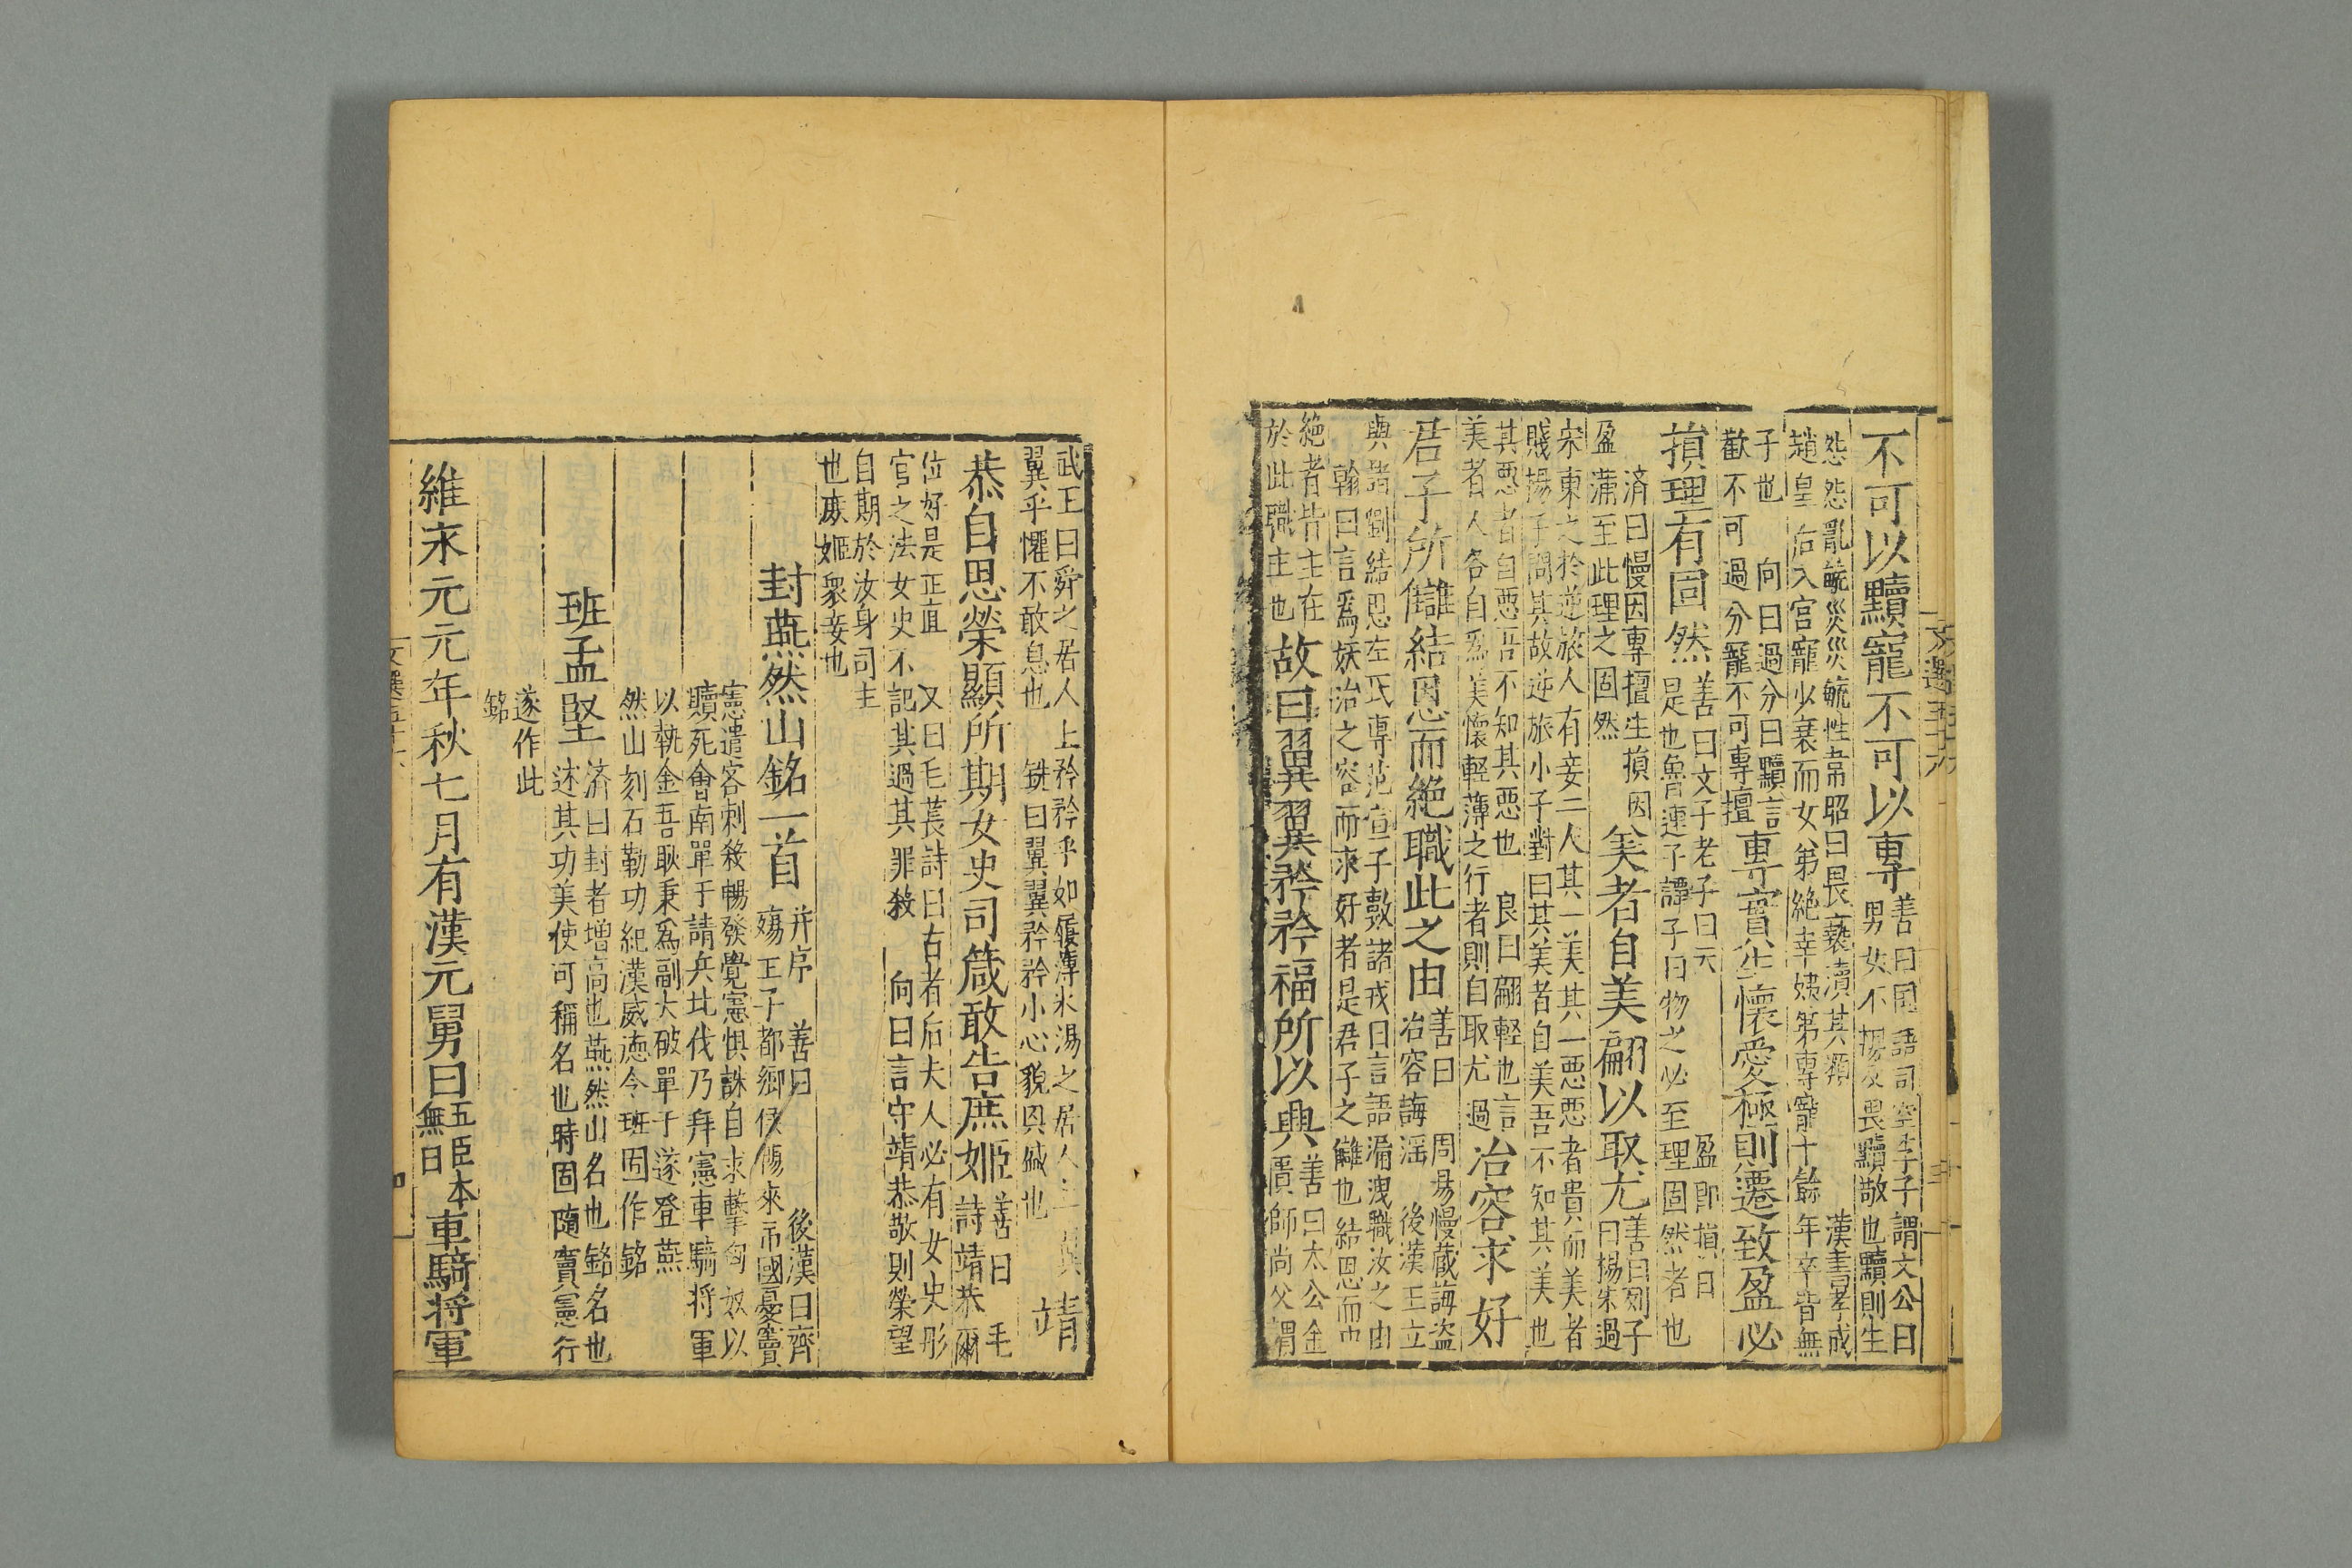 不可以黷寵不可以專善曰國語司空季子謂文公曰
男女不相及畏黷敬也黷則生
怨怨亂毓災災毓性韋昭曰畏褻瀆其類 漢書孝成
趙皇后入宮寵少衰而女弟絶幸姨弟專寵十餘年卒皆無
子也 向曰過分曰黷言
歡不可過分寵不可專擅專實生懷愛極則遷致盈必
損理有固然善曰文子老子曰天 盈即損曰
是也魯連子譚子曰物之必至理固然者也
濟曰慢因專擅生損因
盈蒲至此理之固然美者自美翩以取尤善曰列子
曰揚朱過
宋東之於逆旅人有妾二人其一美其一惡惡者貴而美者
賤揚子問其故逆旅小子對曰其美者自美吾不知其美也
其惡者自惡吾不知其惡也 良曰翩輕也言
美者人各自爲美懷輕薄之行者則自取尤過冶容求好
君子所讎結恩而絶職此之由善曰 周易慢藏誨盜
冶容誨淫 後漢王立
與諸劉結恩左氏專范宣子數諸戎曰言語漏洩職汝之由
翰曰言爲妖冶之容而求好者是君子之讎也結恩而中
絶者皆主在
於此職主也故曰翼翼矜矜福所以興善曰太公金
匱師尚父謂
武王曰舜之居人上矜矜乎如履薄氷湯之居人上
翼乎懼不敢息也 銑曰翼翼矜矜小心貌與緘也靖
恭自思榮顯所期女史司箴敢告庶姬善曰毛
詩靖恭爾
位好是正直 又曰毛萇詩曰古者后夫人必有女史彤
官之法女史不記其過其罪殺 向曰言守靖恭敬則榮望
自期於汝身司主
也庶姬衆妾也
封燕然山銘一首并序 善曰 後漢曰齊
殤王子都鄉侯暢來弔國憂竇
憲遣客刺殺暢發覺憲惧誅自求擊匈奴以
贖死會南單于請兵北伐乃拜憲車騎将軍
以執金吾耿秉爲副大破單于遂登燕
然山刻石勒功紀漢威德今班固作銘
班孟堅濟曰封者增高也燕然山名也銘名也
述其功美使可稱名也時固隨竇憲行
遂作此
銘
維永元元年秋七月有漢元舅曰五臣本
無曰車騎将軍